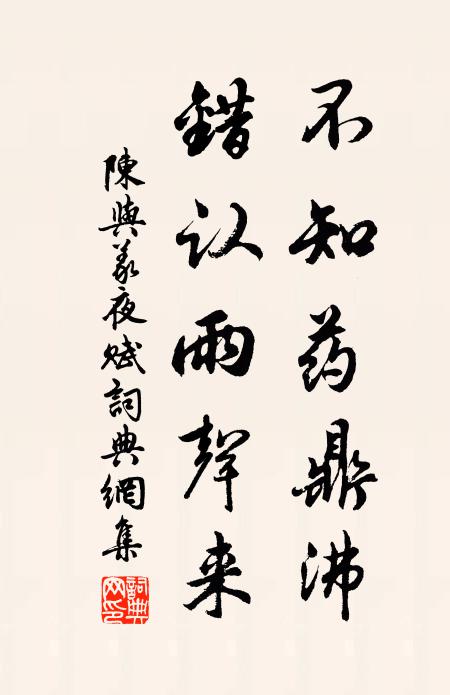 不知药鼎沸
錯认雨聲来
陳與義夜赋詞典網集
詞典网印